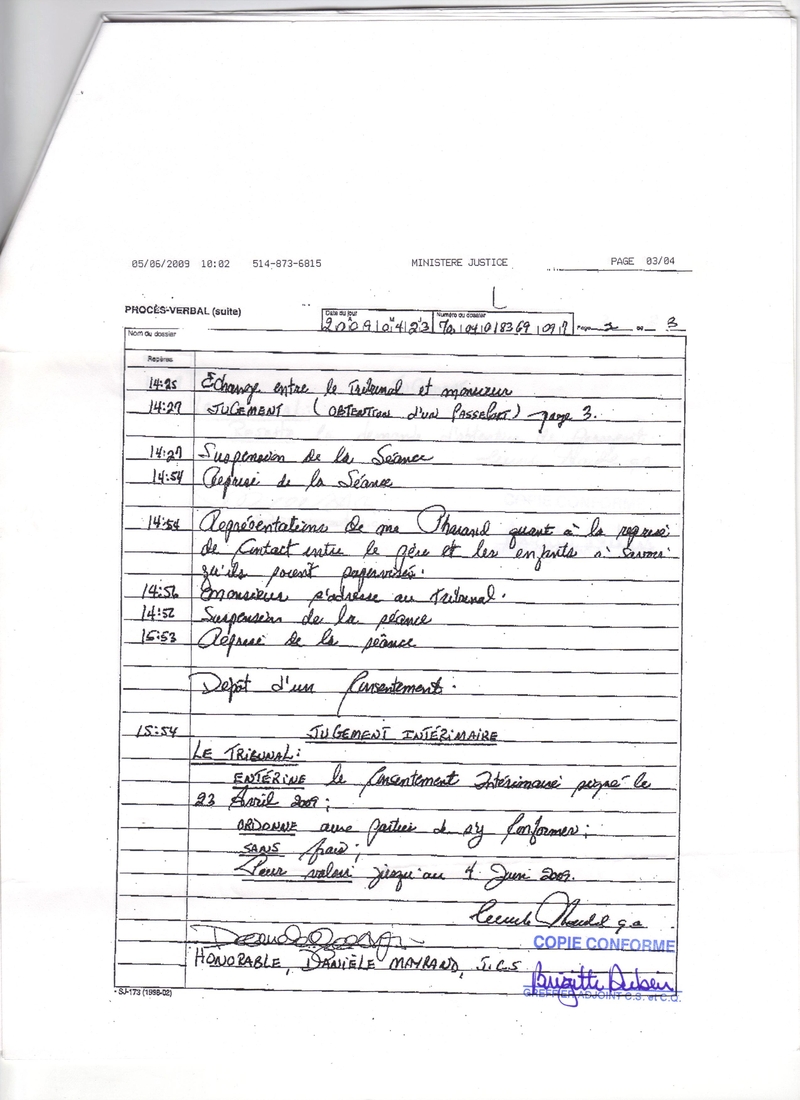 05/06/2009 10:02 514-873-6815 MINISTERE JUSTICE PAGE 03/04
PROCÈS-VERBAL (suite)
Date du jour
Numéro du dossier
2009 04 23
Page 2 de 3
Nom du dossier
Repères
14:25 Échange entre le Tribunal et monsieur
14:27 JUGEMENT (OBTENTION d'un PASSEPORT) page 3.
14:27 Suspension de la Séance
14:54 Reprise de la Séance
14:54 Représentations de me Pharand quant à la reprise
de contact entre le père et les enfants à savoir
qu'ils soient supervisés.
14:56 monsieur s'adresse au Tribunal.
14:52 Suspension de la séance
15:53 Reprise de la séance
Dépôt d'un Consentement.
15:54 JUGEMENT INTÉRIMAIRE
LE TRIBUNAL:
ENTÉRINE le Consentement Intérimaire signé le
23 Avril 2009;
ORDONNE aux parties de s'y conformer;
SANS frais;
Pour valoir jusqu'au 4 Juin 2009.
g.a.
COPIE CONFORME
HONORABLE, DANIÈLE MAYRAND, J.C.S
Brigitte
GREFFIER ADJOINT C.S. et C.Q.
- SJ-173 (1998-02)